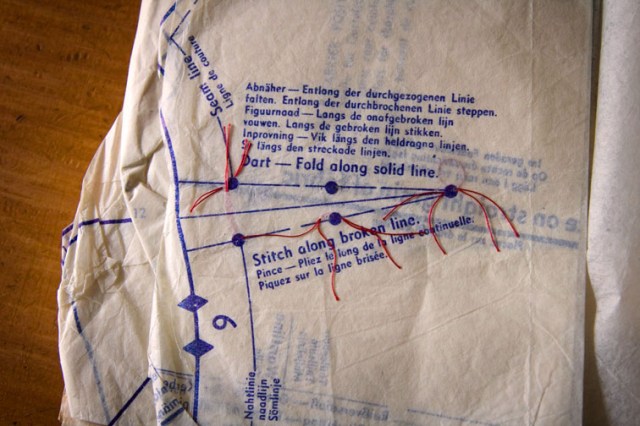 Seam line
Ligne de couture
Abnäher — Entlang der durchgezogenen Linie
falten. Entlang der durchbrochenen Linie steppen.
Figuurnaad — Langs de onafgebroken lijn
vouwen. Langs de gebroken lijn stikken.
Inprovning — Vik längs den heldragna linjen.
längs den streckade linjen.
Dart — Fold along solid line.
Stitch along broken line.
Pince — Pliez le long de la ligne continuelle.
Piquez sur la ligne brisée.
12
6
Nahtlinie
naadlijn
Sömlinje